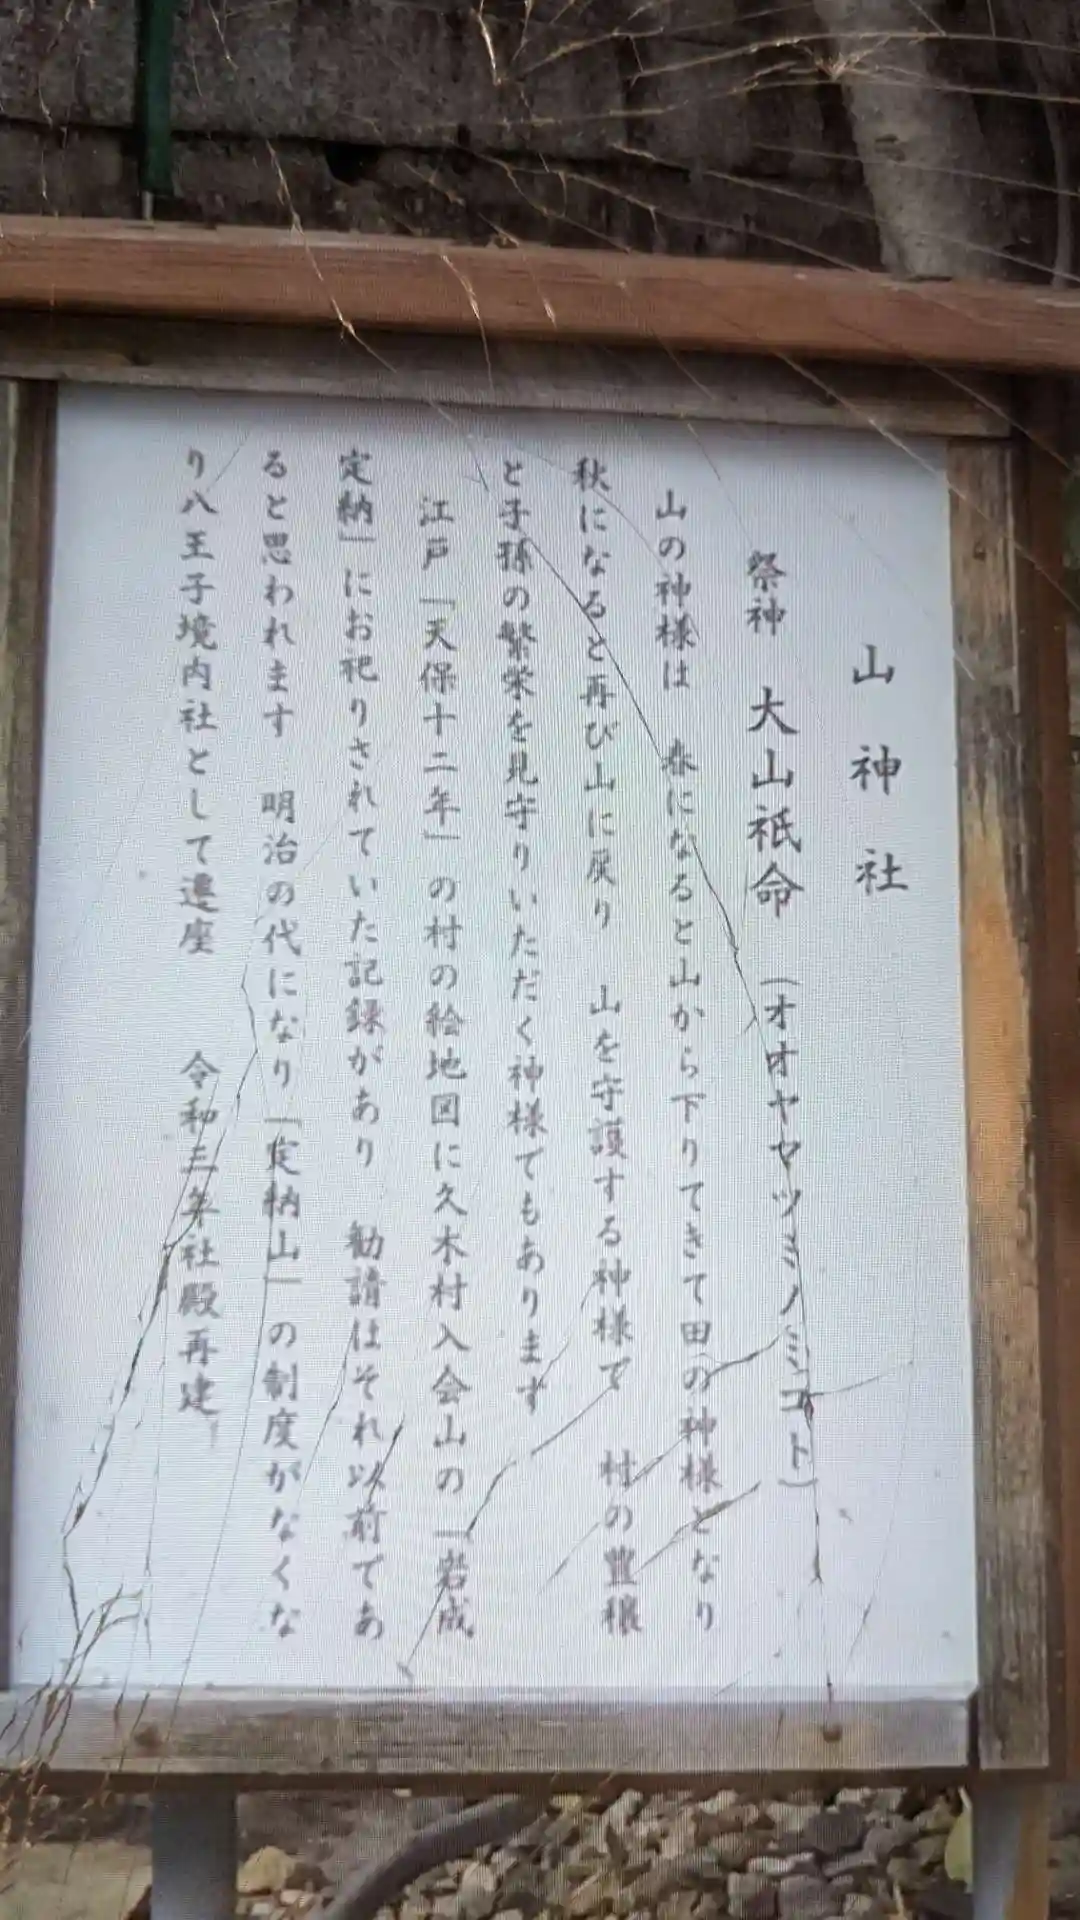 山神社
祭神 大山祇命 (オオヤマツミノミコト)
山の神様は 春になると山から下りてきて田の神様となり
秋になると再び山に戻り 山を守護する神様で 村の豊穣
と子孫の繁栄を見守りいただく神様でもあります
江戸「天保十二年」の村の絵地図に久木村入会山の「岩成
定納」にお祀りされていた記録があり 勧請はそれ以前であ
ると思われます 明治の代になり「定納山」の制度がなくな
り八王子境内社として遷座 令和三年社殿再建